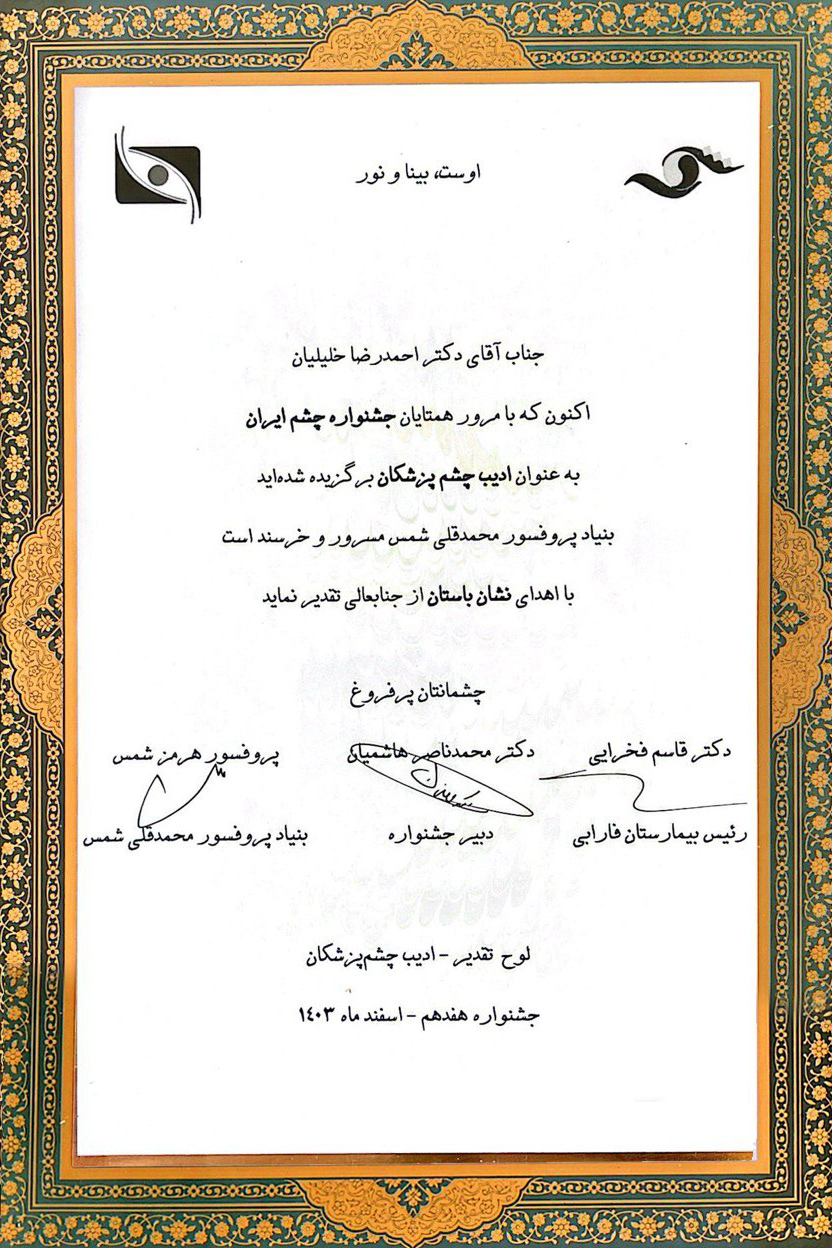 اوست، بینا و نور
جناب آقای دکتر احمدرضا خلیلیان
اکنون که با مرور همتایان جشنواره چشم ایران
به عنوان ادیب چشم پزشکان برگزیده شده‌اید
بنیاد پروفسور محمدقلی شمس مسرور و خرسند است
با اهدای نشان باستان از جنابعالی تقدیر نماید
چشمانتان پرفروغ
دکتر قاسم فخرایی
دکتر محمدناصر هاشمیان
پروفسور هرمز شمس
رئیس بیمارستان فارابی
دبیر جشنواره
بنیاد پروفسور محمدقلی شمس
لوح تقدیر - ادیب چشم‌پزشکان
جشنواره هفدهم - اسفند ماه ۱۴۰۳